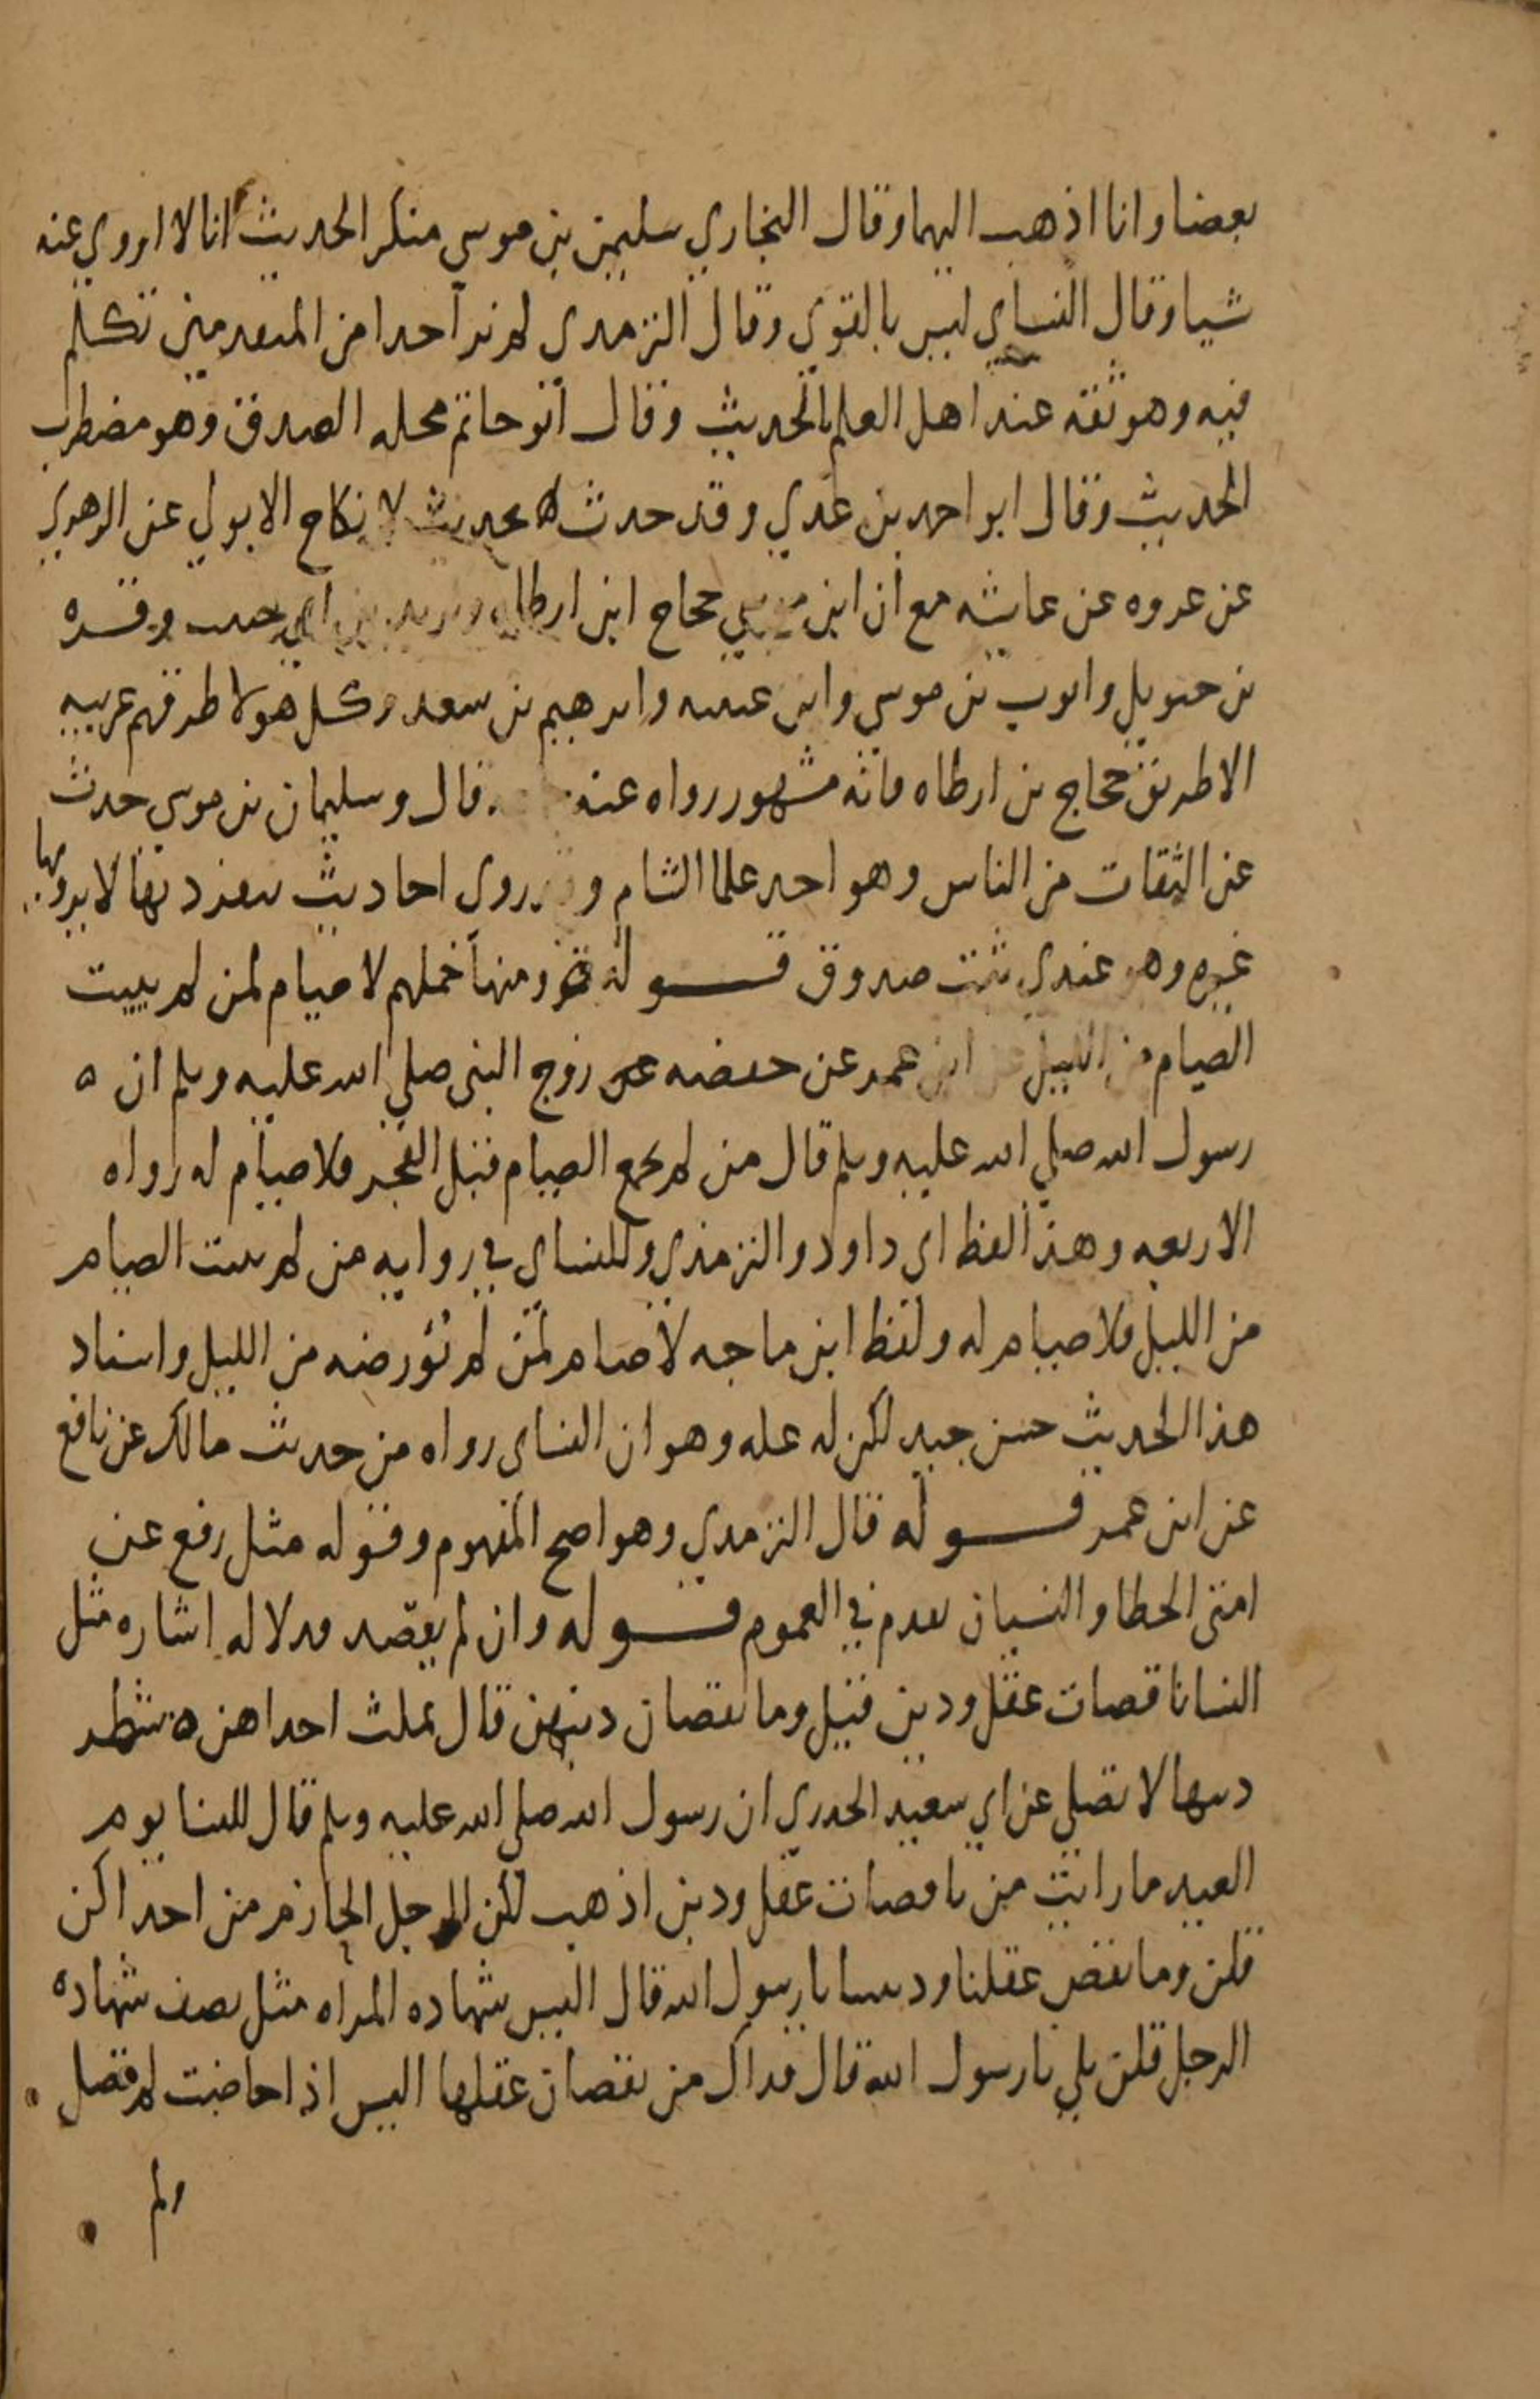 بعضا وانا اذهب اليهما وقال البخاري سليمن بن موسي منكر الحديث انا لا اروي عنه
شيا وقال النساي ليس بالقوي وقال الترمدي لم نر احدا من المتقدمين تكلم
فيه وهو ثقه عند اهل العلم بالحديث وقال ابو حاتم محله الصدق وهو مضطرب
الحديث وقال ابو احمد بن عدي وقد حدث بحديث لا نكاح الا بولي عن الزهري
عن عروه عن عايشه مع ان ابن حجاج ابن ارطاه ويزيد بن ابي حبيب وقره
بن حيويل وايوب بن موسي وابن عيينه وابرهيم بن سعد وكل هولا طرقهم غريبه
الا طريق حجاج بن ارطاه فانه مشهور رواه عنه قال وسليمان بن موسي حدث
عن الثقات من الناس وهو احد علما الشام و روي احاديث ينفرد بها لا يرويها
غيره وهو عندي ثبت صدوق قوله ومنها حملهم لا صيام لمن لم يبيت
الصيام من الليل عن ابن عمر عن حفصه زوج النبي صلي الله عليه وسلم ان
رسول الله صلي الله عليه وسلم قال من لم يجمع الصيام قبل الفجر فلا صيام له رواه
الاربعه وهذا لفظ ابي داود والترمذي وللنساي في روايه من لم يبيت الصيام
من الليل فلا صيام له ولفظ ابن ماجه لا صيام لمن لم يؤرضه من الليل واسناد
هذا الحديث حسن جيد لكن له عله وهو ان النساي رواه من حديث مالك عن نافع
عن ابن عمر قوله قال الترمدي وهو اصح المفهوم وقوله مثل رفع عن
امتي الخطا والنسيان تقدم في العموم قوله وان لم يقصد فدلاله اشاره مثل
النسا ناقصات عقل ودين قيل وما نقصان دينهن قال تمكث احداهن شطر
دهرها لا تصلي عن ابي سعيد الخدري ان رسول الله صلي الله عليه وسلم قال للنسا يوم
العيد ما رايت من ناقصات عقل ودين اذهب للب الرجل الحازم من احداكن
قلن وما نقص عقلنا وديننا يا رسول الله قال اليس شهاده المراه مثل نصف شهاده
الرجل قلن بلي يا رسول الله قال فداك من نقصان عقلها اليس اذا حاضت لم تصل
ولم